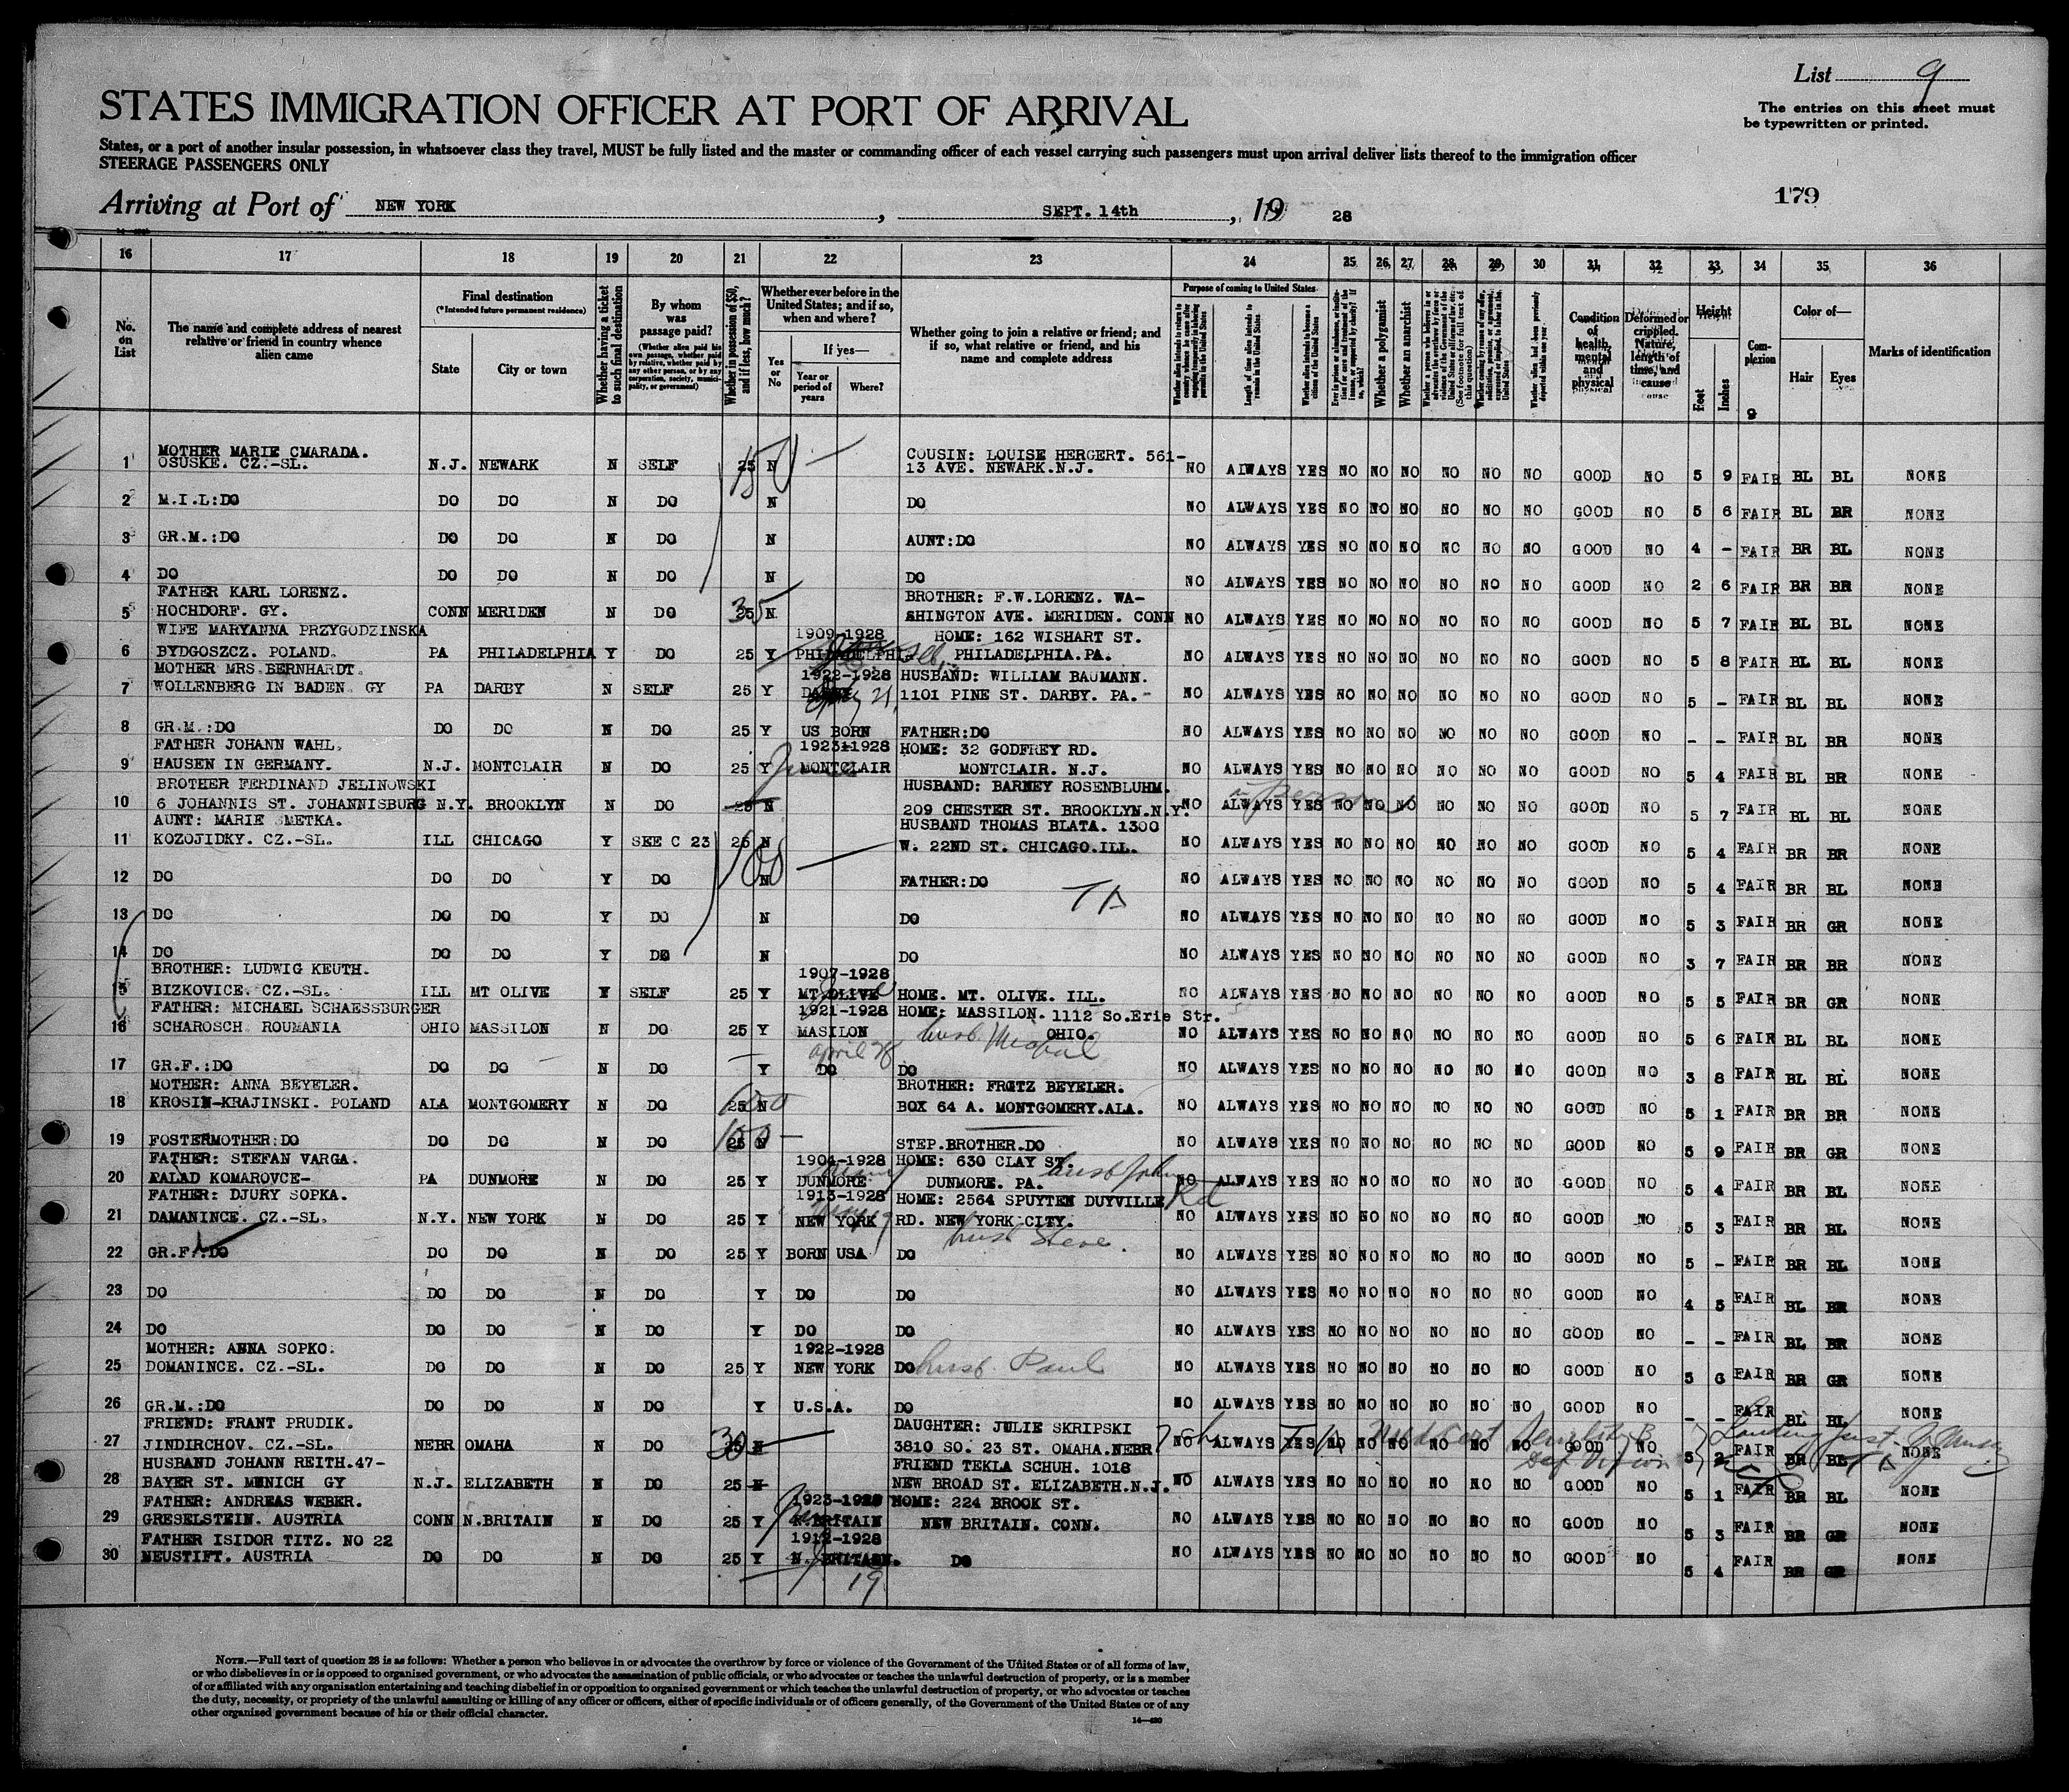 List 9
STATES IMMIGRATION OFFICER AT PORT OF ARRIVAL
The entries on this sheet must
be typewritten or printed.
States, or a port of another insular possession, in whatsoever class they travel, MUST be fully listed and the master or commanding officer of each vessel carrying such passengers must upon arrival deliver lists thereof to the immigration officer
STEERAGE PASSENGERS ONLY
179
Arriving at Port of NEW YORK, SEPT. 14th, 19 28
16 17 18 19 20 21 22 23 24 25 26 27 28 29 30 31 32 33 34 35 36
No. on List
The name and complete address of nearest relative or friend in country whence alien came
Final destination
(*Intended future permanent residence)
State
City or town
Whether having a ticket to such final destination
By whom was passage paid?
(Whether alien paid his own passage, whether paid by relative, whether paid by any other person, or by any corporation, society, municipality, or government)
Whether in possession of $50, and if less, how much?
Whether ever before in the United States; and if so, when and where?
Yes or No
If yes—
Year or period of years
Where?
Whether going to join a relative or friend; and if so, what relative or friend, and his name and complete address
Purpose of coming to United States
Length of time alien intends to remain in the United States
Whether alien intends to become a citizen of the United States
Whether a polygamist
Whether an anarchist
Condition of health, mental and physical
Deformed or crippled. Nature, length of time, and cause
Height
Feet
Inches
Complexion
Color of—
Hair
Eyes
Marks of identification
MOTHER MARIE CMARADA. COUSIN: LOUISE HERGERT. 561-
1 OSUSKE. CZ.-SL. N.J. NEWARK N SELF 25 150 N — 13 AVE. NEWARK.N.J. NO ALWAYS YES NO NO NO NO NO NO GOOD NO 5 9 FAIR BL BL NONE
2 M.I.L:DO DO DO N DO N DO NO ALWAYS YES NO NO NO NO NO NO GOOD NO 5 6 FAIR BL BR NONE
3 GR.M.:DO DO DO N DO N AUNT:DO NO ALWAYS YES NO NO NO NO NO NO GOOD NO 4 - FAIR BR BL NONE
4 DO DO DO N DO N DO NO ALWAYS YES NO NO NO NO NO NO GOOD NO 2 6 FAIR BR BR NONE
FATHER KARL LORENZ. BROTHER: F.W.LORENZ. WA-
5 HOCHDORF. GY. CONN MERIDEN N DO 25 35 N SHINGTON AVE. MERIDEN. CONN NO ALWAYS YES NO NO NO NO NO NO GOOD NO 5 7 FAIR BL BL NONE
WIFE MARYANNA PRZYGODZINSKA 1909-1928 HOME: 162 WISHART ST.
6 BYDGOSZCZ. POLAND. PA PHILADELPHIA Y DO 25 Y PHILADELPHI PHILADELPHIA.PA. NO ALWAYS YES NO NO NO NO NO NO GOOD NO 5 8 FAIR BL BL NONE
MOTHER MRS.BERNHARDT. 1922-1928 HUSBAND: WILLIAM BAUMANN.
7 WOLLENBERG IN BADEN GY PA DARBY N SELF 25 Y 1101 PINE ST. DARBY. PA. NO ALWAYS YES NO NO NO NO NO NO GOOD NO 5 - FAIR BL BL NONE
8 GR.M.:DO DO DO N DO 25 Y US BORN FATHER:DO NO ALWAYS YES NO NO NO NO NO NO GOOD NO - - FAIR BL BR NONE
FATHER JOHANN WAHL. 1923-1928 HOME: 32 GODFREY RD.
9 HAUSEN IN GERMANY. N.J. MONTCLAIR N DO 25 Y MONTCLAIR MONTCLAIR. N.J. NO ALWAYS YES NO NO NO NO NO NO GOOD NO 5 4 FAIR BL BR NONE
BROTHER FERDINAND JELINOWSKI HUSBAND: BARNEY ROSENBLUHM.
10 6 JOHANNIS ST. JOHANNISBURG N.Y. BROOKLYN N DO 25 N 209 CHESTER ST. BROOKLYN.N.Y. NO ALWAYS YES NO NO NO NO NO NO GOOD NO 5 7 FAIR BL BL NONE
AUNT: MARIE SMETKA. HUSBAND THOMAS BLATA. 1300
11 KOZOJIDKY. CZ.-SL. ILL CHICAGO Y SEE C 23 25 100 N — W. 22ND ST. CHICAGO.ILL. NO ALWAYS YES NO NO NO NO NO NO GOOD NO 5 4 FAIR BR BR NONE
12 DO DO DO Y DO N FATHER:DO NO ALWAYS YES NO NO NO NO NO NO GOOD NO 5 4 FAIR BR BL NONE
13 DO DO DO Y DO N DO NO ALWAYS YES NO NO NO NO NO NO GOOD NO 5 3 FAIR BR GR NONE
14 DO DO DO Y DO N DO NO ALWAYS YES NO NO NO NO NO NO GOOD NO 3 7 FAIR BR BR NONE
BROTHER: LUDWIG KEUTH. 1907-1928
15 BIZKOVICE. CZ.-SL. ILL MT OLIVE Y SELF 25 Y MT OLIVE HOME. MT. OLIVE. ILL. NO ALWAYS YES NO NO NO NO NO NO GOOD NO 5 5 FAIR BR GR NONE
FATHER: MICHAEL SCHAESSBURGER 1921-1928 HOME: MASSILON. 1112 So.Erie Str.
16 SCHAROSCH ROUMANIA OHIO MASSILON N DO 25 Y MASILON OHIO. husb. Michal NO ALWAYS YES NO NO NO NO NO NO GOOD NO 5 6 FAIR BL BL NONE
april 28
17 GR.F.:DO DO DO N DO — Y DO DO NO ALWAYS YES NO NO NO NO NO NO GOOD NO 3 8 FAIR BL BL NONE
MOTHER: ANNA BEYELER. BROTHER: FROTZ BEYELER.
18 KROSIN-KRAJINSKI. POLAND ALA MONTGOMERY N DO 25 N BOX 64 A. MONTGOMERY.ALA. NO ALWAYS YES NO NO NO NO NO NO GOOD NO 5 1 FAIR BR BR NONE
19 FOSTERMOTHER:DO DO DO N DO 25 100 N — STEP.BROTHER.DO NO ALWAYS YES NO NO NO NO NO NO GOOD NO 5 9 FAIR BR GR NONE
FATHER: STEFAN VARGA. 1904-1928 HOME: 630 CLAY ST. husb John
20 FALAD KOMAROVCE- PA DUNMORE N DO 25 Y DUNMORE DUNMORE. PA. NO ALWAYS YES NO NO NO NO NO NO GOOD NO 5 4 FAIR BR BL NONE
FATHER: DJURY SOPKA. 1913-1928 HOME: 2564 SPUYTEN DUYVILLE Rd
21 DAMANINCE. CZ.-SL. N.Y. NEW YORK N DO 25 Y NEW YORK RD. NEW YORK CITY. NO ALWAYS YES NO NO NO NO NO NO GOOD NO 5 3 FAIR BR BL NONE
husb Steve.
22 GR.F.:DO DO DO N DO 25 Y BORN USA DO NO ALWAYS YES NO NO NO NO NO NO GOOD NO 5 - FAIR BR BL NONE
23 DO DO DO N DO Y DO DO NO ALWAYS YES NO NO NO NO NO NO GOOD NO 4 5 FAIR BL BR NONE
24 DO DO DO N DO Y DO DO NO ALWAYS YES NO NO NO NO NO NO GOOD NO - - FAIR BL BR NONE
MOTHER: ANNA SOPKO. 1922-1928
25 DOMANINCE. CZ.-SL. DO DO N DO 25 Y NEW YORK DO husb. Paul NO ALWAYS YES NO NO NO NO NO NO GOOD NO 5 6 FAIR BR GR NONE
26 GR.M.:DO DO DO N DO Y U.S.A. DO NO ALWAYS YES NO NO NO NO NO NO GOOD NO - - FAIR BL BL NONE
FRIEND: FRANT PRUDIK. DAUGHTER: JULIE SKRIPSKI
27 JINDIRCHOV. CZ.-SL. NEBR OMAHA N DO 30 N — 3810 SO. 23 ST. OMAHA.NEBR Med Cert GOOD NO 5 2 FAIR BR BL NONE
HUSBAND JOHANN REITH.47- FRIEND TEKLA SCHUH. 1018
28 BAYER ST. MUNICH GY N.J. ELIZABETH N DO 25 N NEW BROAD ST. ELIZABETH.N.J. NO ALWAYS YES NO NO NO NO NO NO GOOD NO 5 1 FAIR BR BL NONE
FATHER: ANDREAS WEBER. 1923-1928 HOME: 224 BROOK ST.
29 GRESELSTEIN. AUSTRIA CONN N.BRITAIN N DO 25 Y N.BRITAIN NEW BRITAIN. CONN. NO ALWAYS YES NO NO NO NO NO NO GOOD NO 5 3 FAIR BR GR NONE
FATHER ISIDOR TITZ. NO 22 1912-1928
30 NEUSTIFT. AUSTRIA DO DO N DO 25 Y N. BRITAIN. DO NO ALWAYS YES NO NO NO NO NO NO GOOD NO 5 4 FAIR BR GR NONE
19
NOTE.—Full text of question 28 is as follows: Whether a person who believes in or advocates the overthrow by force or violence of the Government of the United States or of all forms of law,
or who disbelieves in or is opposed to organized government, or who advocates the assassination of public officials, or who advocates or teaches the unlawful destruction of property, or is a member
of or affiliated with any organization entertaining and teaching disbelief in or opposition to organized government or which teaches the unlawful destruction of property, or who advocates or teaches
the duty, necessity, or propriety of the unlawful assaulting or killing of any officer or officers, either of specific individuals or of officers generally, of the Government of the United States or of any
other organized government because of his or their official character.